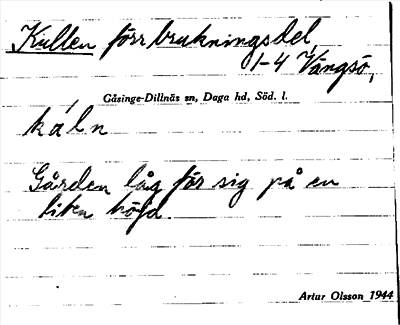 Kullen förr brukningsdel,
1-4 Vängsö,
Gåsinge-Dillnäs sn, Daga hd, Söd. l.
káln
Gården låg för sig på en
liten höjd.
Artur Olsson 1944